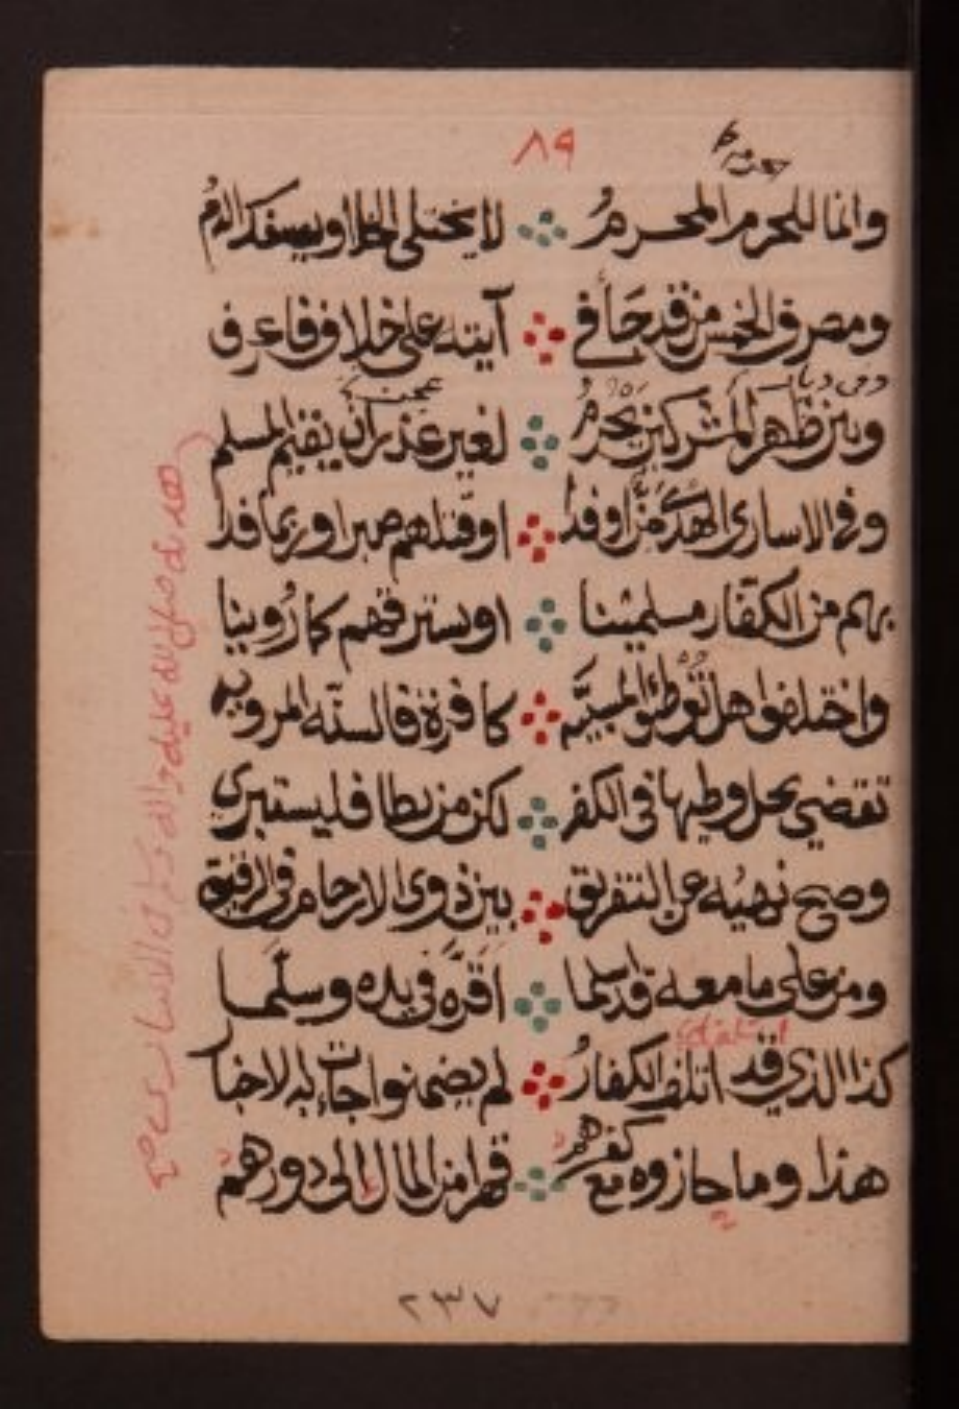 ٨٩
وانما للحرم المحرم لا يختلى الخلا ويسفك الدم
ومصرف الخمس من قد جا في آيته على خلاف فاعرف
وبين ظهر المشركين يحرم لغير عذر ان يقيم المسلم
وفي الاسارى الهدي من او فدا او قتلهم صبرا وربما فدا
بهم من الكفار مسلمينا او يسترقهم كما روينا
واختلفوا هل توطؤ المسبيه كافرة فالسنه المرويه
تقضي بحل وطيها في الكفر لكن من يطا فليستبري
وصح نهيه عن التفريق بين ذوي الارحام في الرقيق
ومن على ما معه قد اسلما اقره في يده وسلما
كذا الذي قد اتلف الكفار لم يضمنوا جات به الاخبار
هذا وما حازوه مع كفرهم قهرا من المال الى دورهم
هديه صلى الله عليه واله وسلم في الاسارى صح
٢٣٧